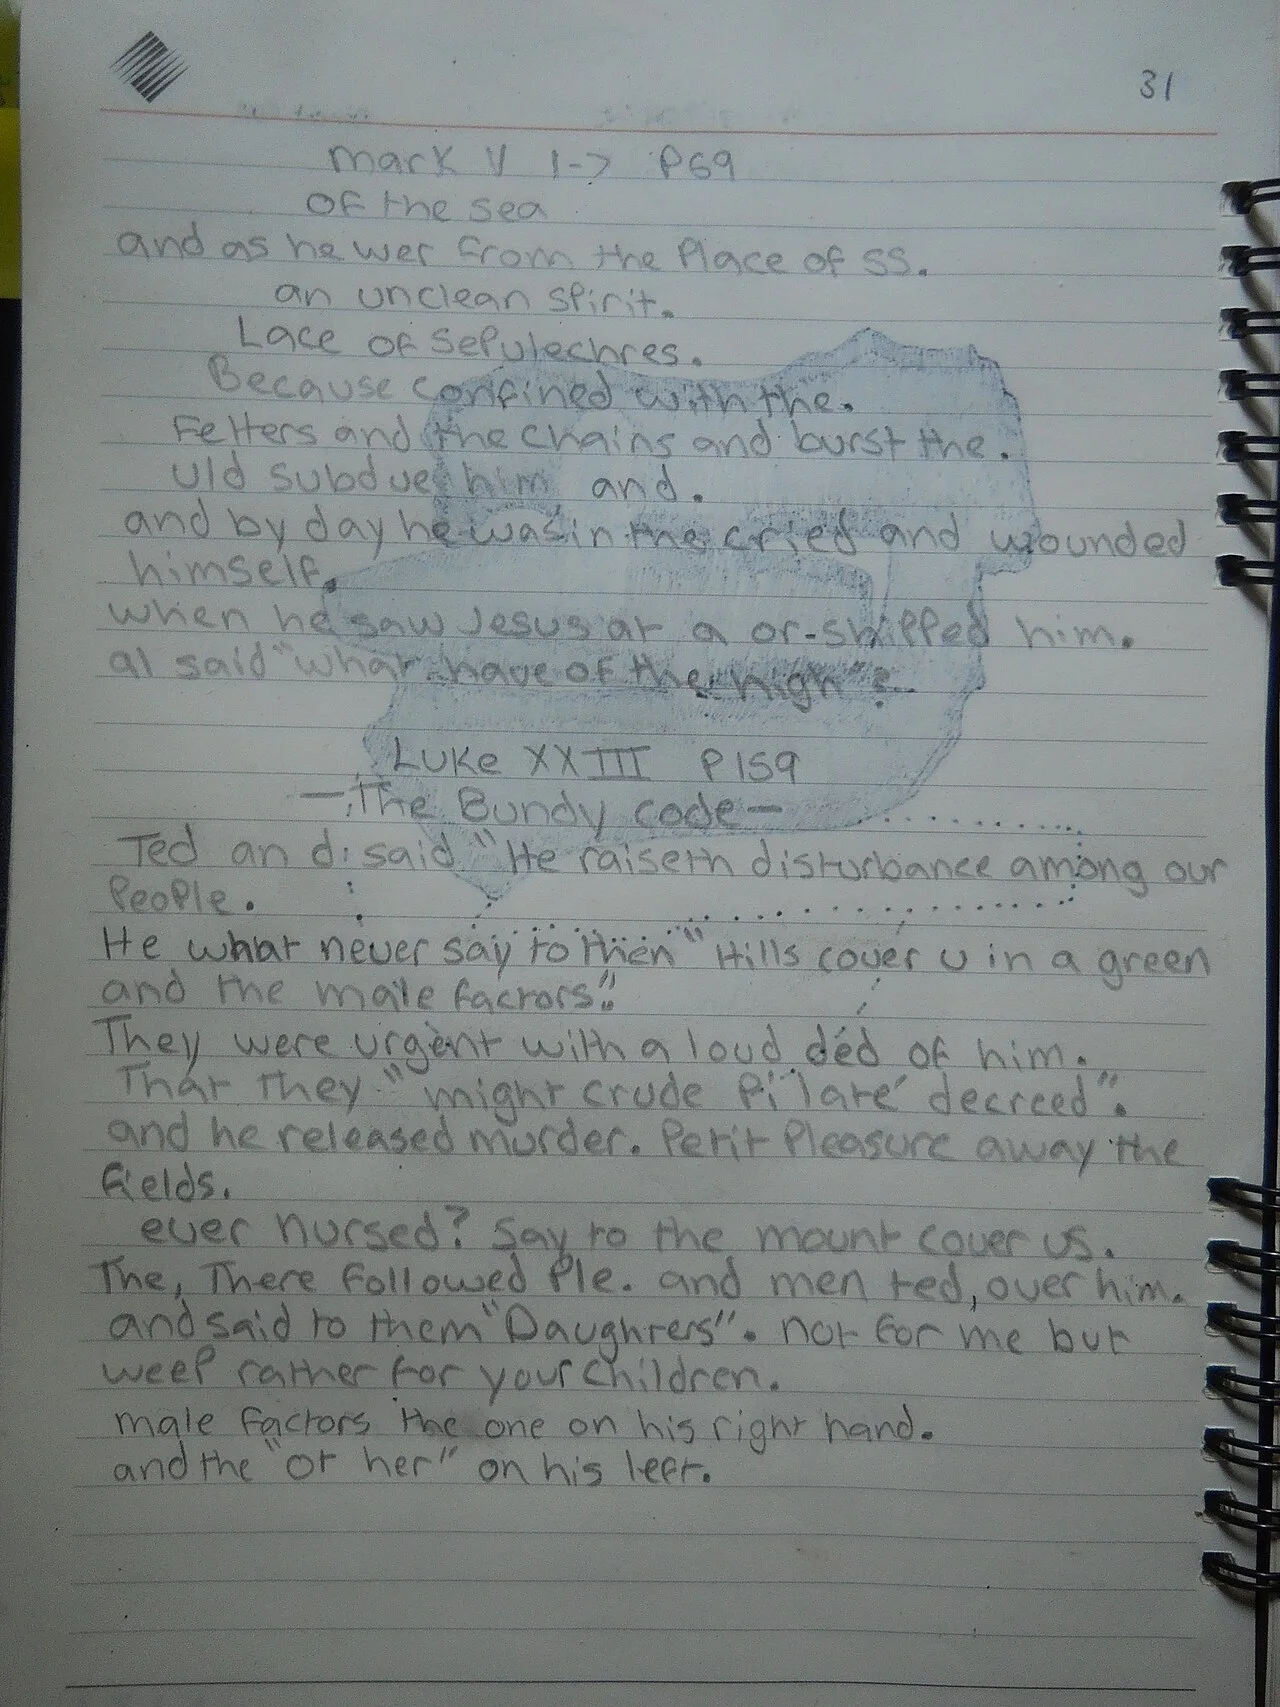 31
Mark V 1-> P69
of the sea
and as he wer from the Place of ss.
an unclean spirit.
Lace of Sepulechres.
Because confined with the.
Fetters and the chains and burst the.
uld subdue him and.
and by day he was in the cried and wounded
himself.
when he saw Jesus at a or-shipped him.
al said "what have of the high"?
Luke XXIII P159
-The Bundy code-
Ted an di said "He raiseth disturbance among our
People.
He what never say to then "Hills cover u in a green
and the male factors".
They were urgent with a loud ded of him.
That they "might crude Pi'late' decreed".
and he released murder. Petit Pleasure away the
fields.
ever nursed? Say to the mount cover us.
The, There followed Ple. and men ted, over him.
and said to them "Daughters". not for me but
weep rather for your children.
male factors the one on his right hand.
and the "ot her" on his left.